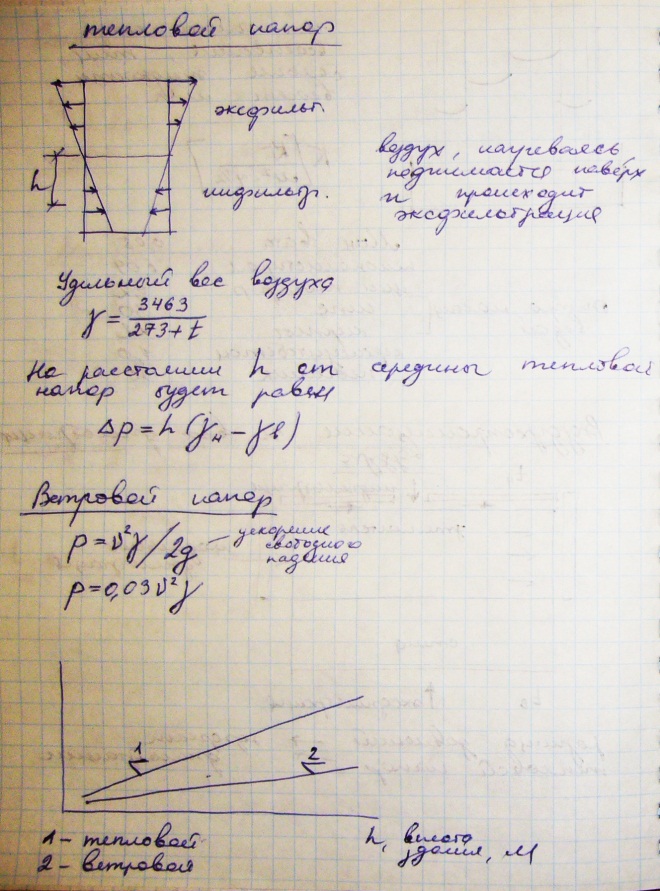 тепловой напор
эксфильт.
h
инфильтр.
воздух, нагреваясь
поднимается поверх
и происходит
эксфильтрация
Удельный вес воздуха
γ = 3463 / 273+t
На расстоянии h от середины тепловой
напор будет равен
Δp = h (γн – γв)
Ветровой напор
p = v²γ/2g – ускорение
свободного
падения
p = 0,03v²γ
1
2
1 – тепловой
2 – ветровой
h, высота
здания, м